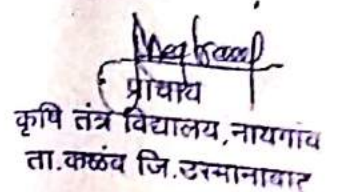 प्राचार्य
कृषि तंत्र विद्यालय, नायगांव
ता. कळंब जि. उस्मानाबाद